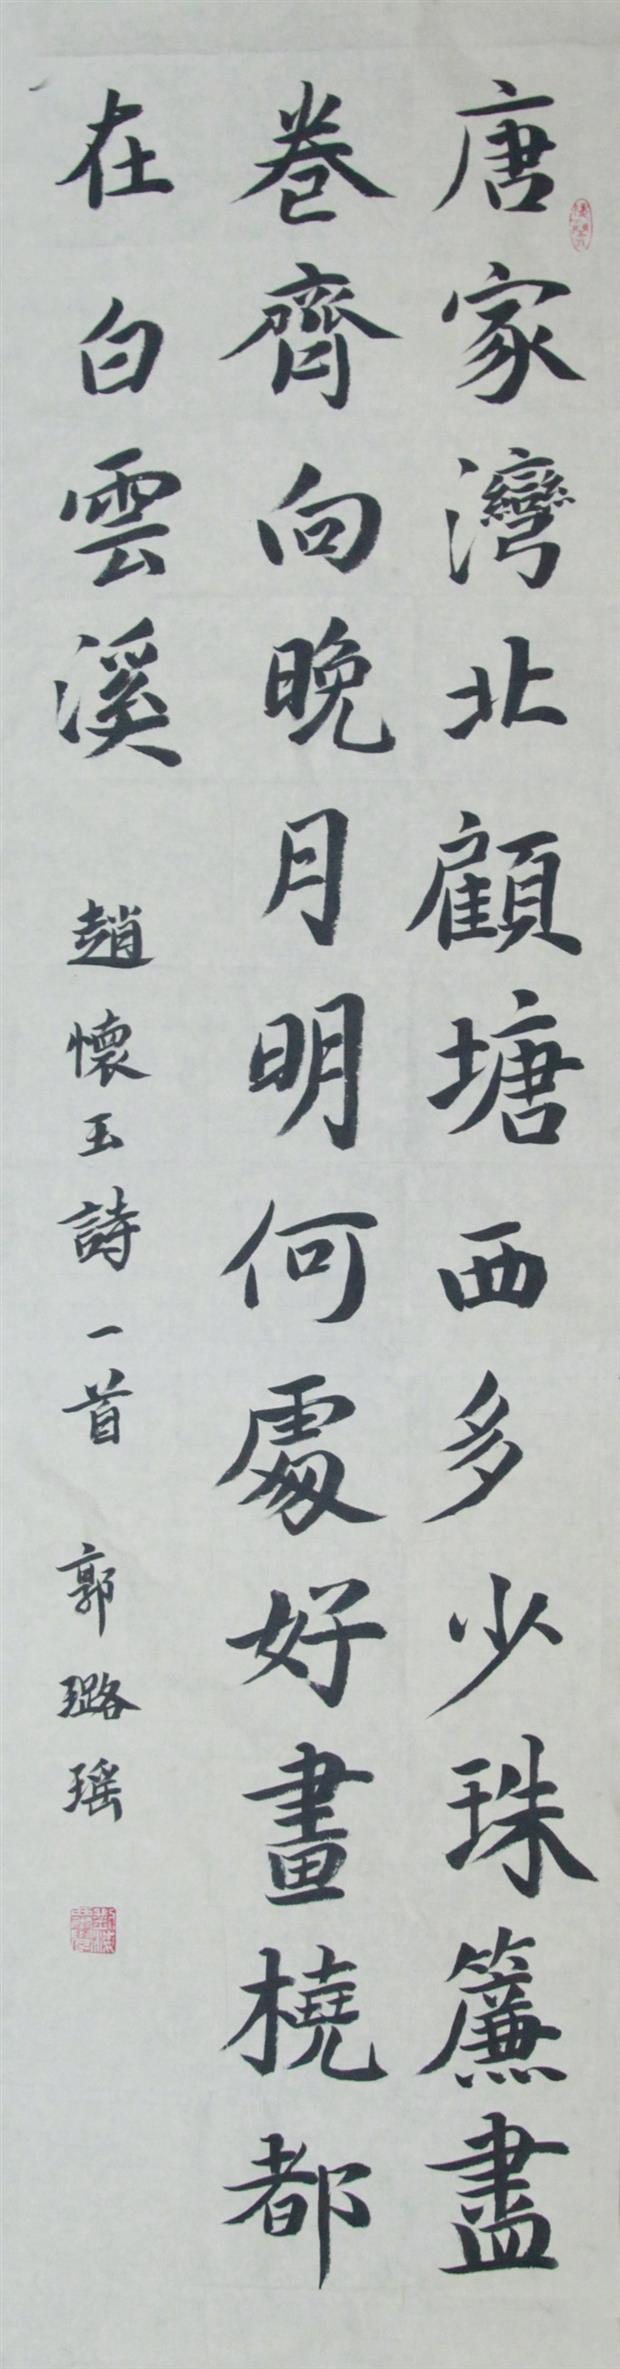 唐家灣北顧塘西多少珠簾盡
卷齊向晚月明何處好畫橈都
在白雲溪
趙懷玉詩一首 郭璐瑶